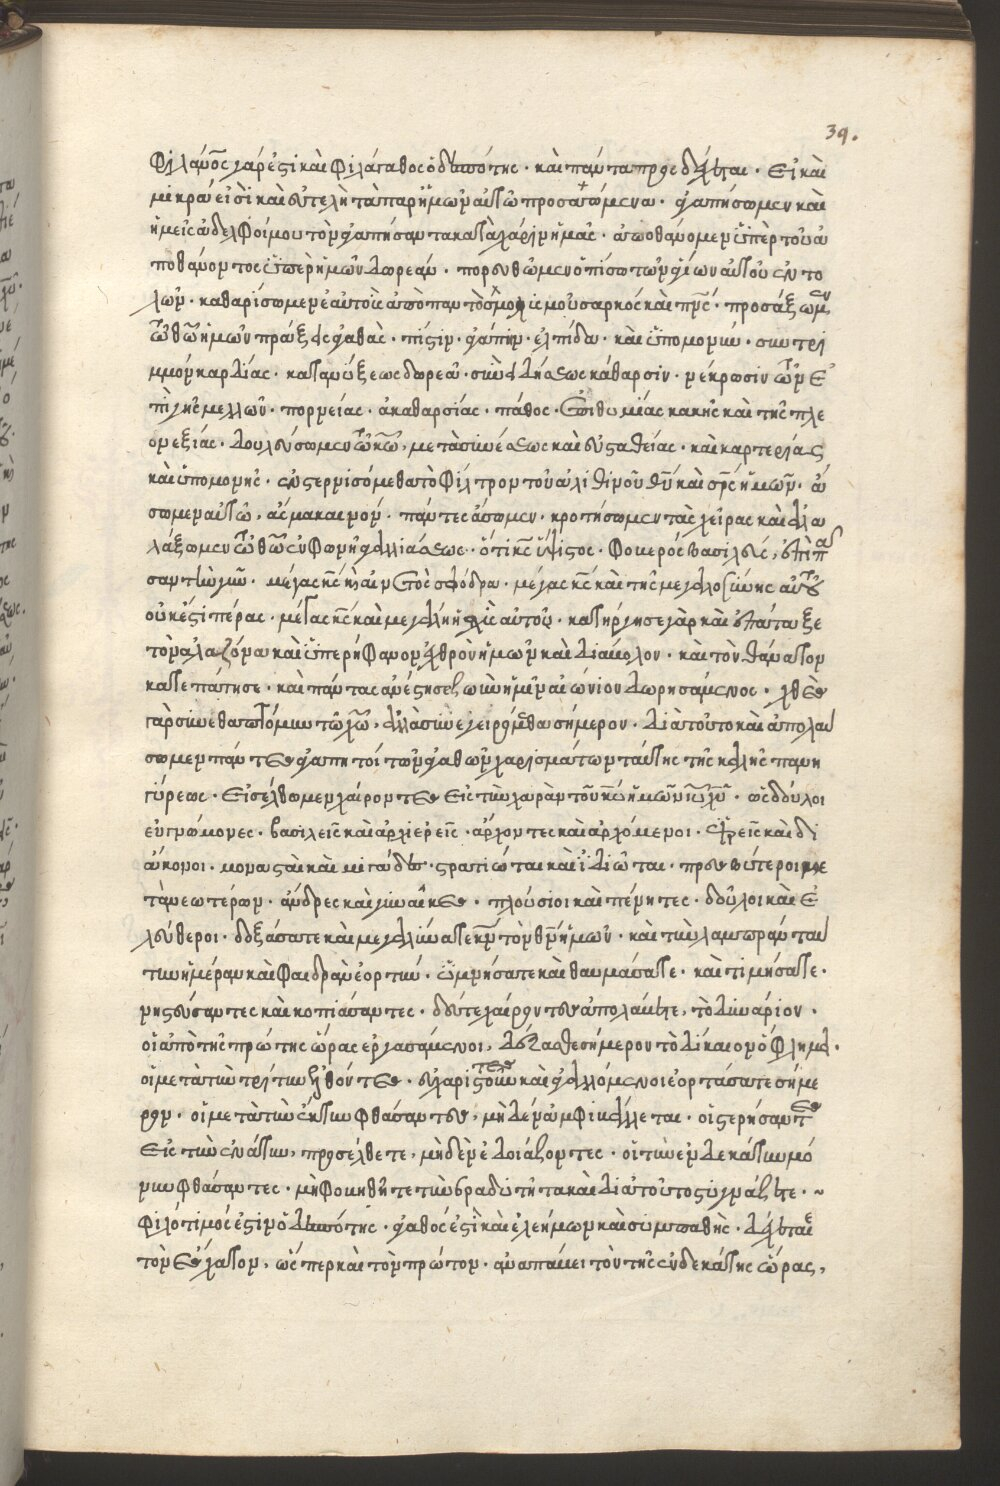 39.
φιλάνος γάρ ἐστι καὶ φιλάγαθος ὁ δεσπότης · καὶ πάντα προσδέχεται · εἰ καὶ
μικρά εἰσὶ καὶ εὐτελῆ τὰ παρ' ἡμῶν αὐτῶ προσαγόμενα · ἀγαπήσωμεν καὶ
ἡμεῖς ἀδελφοί μου τὸν ἀγαπήσαντα κατὰ χάριν ἡμᾶς · ἀποθάνομεν ὑπὲρ τοῦ ἀ
ποθανόντος ὑπὲρ ἡμῶν δωρεάν · πορευθῶμεν ὀπίσω τῶν ἁγίων αὐτοῦ ἐντο
λῶν · καθαρίσωμεν ἑαυτοὺς ἀπὸ παντὸς μολυσμοῦ σαρκός καὶ πνς · προσάξωμεν
τῶ θῶ ἡμῶν πράξεις ἀγαθὰς · πίστιν · ἀγάπην · ἐλπίδα · καὶ ὑπομονὴν · συντρι
μμὸν καρδίας · κατανύξεως δωρεὰν · συνειδήσεως κάθαρσιν · νέκρωσιν τῶν ἐ
πὶ γῆς μελλῶν · πορνείας · ἀκαθαρσίας · πάθος · ἐπιθυμίας κακῆς καὶ τῆς πλε
ονεξίας · δουλεύσωμεν τῶ κω, μετὰ συνέσεως καὶ εὐσταθείας · καὶ καρτερίας
καὶ ὑπομονῆς · ἐνστερνισόμεθα τὸ φίλτρον τοῦ ἀληθινοῦ θυ καὶ σρς ἡμῶν · ἄ
σωμεν αὐτῶ, ἆσμα καινόν · πάντες ἄσωμεν · κροτήσωμεν τὰς χεῖρας καὶ ἀλα
λάξωμεν τῶ θω ἐν φωνῆ ἀγαλλιάσεως · ὅτι κς ὕψιστος · φοβερός βασιλεύς, ἐπὶ πᾶ
σαν τὴν γῆν · μέγας κς καὶ αἰνετὸς σφόδρα · μέγας κς καὶ τῆς μεγαλοσύνης αὐτοῦ
οὐκ ἔστι πέρας · μέγας κς καὶ μεγάλη ἡ ἰσχὺς αὐτοῦ · κατήργησε γὰρ καὶ ἐπάταξε
τὸν ἀλαζόνα καὶ ὑπερήφανον ἐχθρὸν ἡμῶν καὶ διάβολον · καὶ τὸν θάνατον
κατεπάτησε · καὶ πάντας ἀνέστησε ζωὴν ἡμῖν αἰώνιον δωρησάμενος · χθὲς
γὰρ συνεθαπτόμην τῶ χω, ἀλλὰ συνεγειρόμεθα σήμερον · διὰ τοῦτο καὶ ἀπολαύ
σωμεν πάντες ἀγαπητοί τῶν ἀγαθῶν χαρισμάτων ταύτης τῆς καλῆς πανη
γύρεως · εἰσέλθωμεν χαίροντες εἰς τὴν χαρὰν τοῦ κυ ἡμῶν ιυ χυ · ὡς δούλοι
εὐγνώμονες · βασιλεῖς καὶ ἀρχιερεῖς · ἄρχοντες καὶ ἀρχόμενοι · ἱερεῖς καὶ δι
άκονοι · μονασταὶ καὶ μιγάδες · στρατιώται καὶ ἰδιώται · πρεσβύτεροι με
τὰ νεωτέρων · ἄνδρες καὶ γυναῖκες · πλούσιοι καὶ πένητες · δοῦλοι καὶ ἐ
λεύθεροι · δοξάσατε καὶ μεγαλύνατε κν τὸν θν ἡμῶν · καὶ τὴν λαμπρὰν ταύ
την ἡμέραν καὶ φαιδρὰν ἑορτὴν · ὑμνήσατε καὶ θαυμάσατε · καὶ τιμήσατε ·
νηστεύσαντες καὶ κοπιάσαντες · δεύτε χαίροντες ἀπολάβετε, τὸ δινάριον ·
οἱ ἀπὸ τῆς πρώτης ὥρας ἐργασάμενοι, δέξασθε σήμερον τὸ δίκαιον ὄφλημα ·
οἱ μετὰ τὴν τρίτην ἐλθόντες · εὐχαριστοῦντες καὶ ἀγαλλόμενοι ἑορτάσατε σήμε
ρον · οἱ μετὰ τὴν ἕκτην φθάσαντες, μηδὲν ἀμφιβάλλεται · οἱ ὑστερήσαντες
εἰς τὴν ἐνάτην, προσέλθετε, μηδὲν ἐνδοιάζοντες · οἱ τὴν ἑνδεκάτην μό
νην φθάσαντες · μὴ φοβηθῆτε τὴν βραδύτητα καὶ διὰ τοῦτο στυγνάζετε · ~
φιλότιμός ἐστιν ὁ δεσπότης · ἀγαθός ἐστὶ καὶ ἐλεήμων καὶ συμπαθὴς · δέχεται
τὸν ἔσχατον, ὥσπερ καὶ τὸν πρώτον · ἀναπαύει τὸν τῆς ἐνδεκάτης ὥρας,